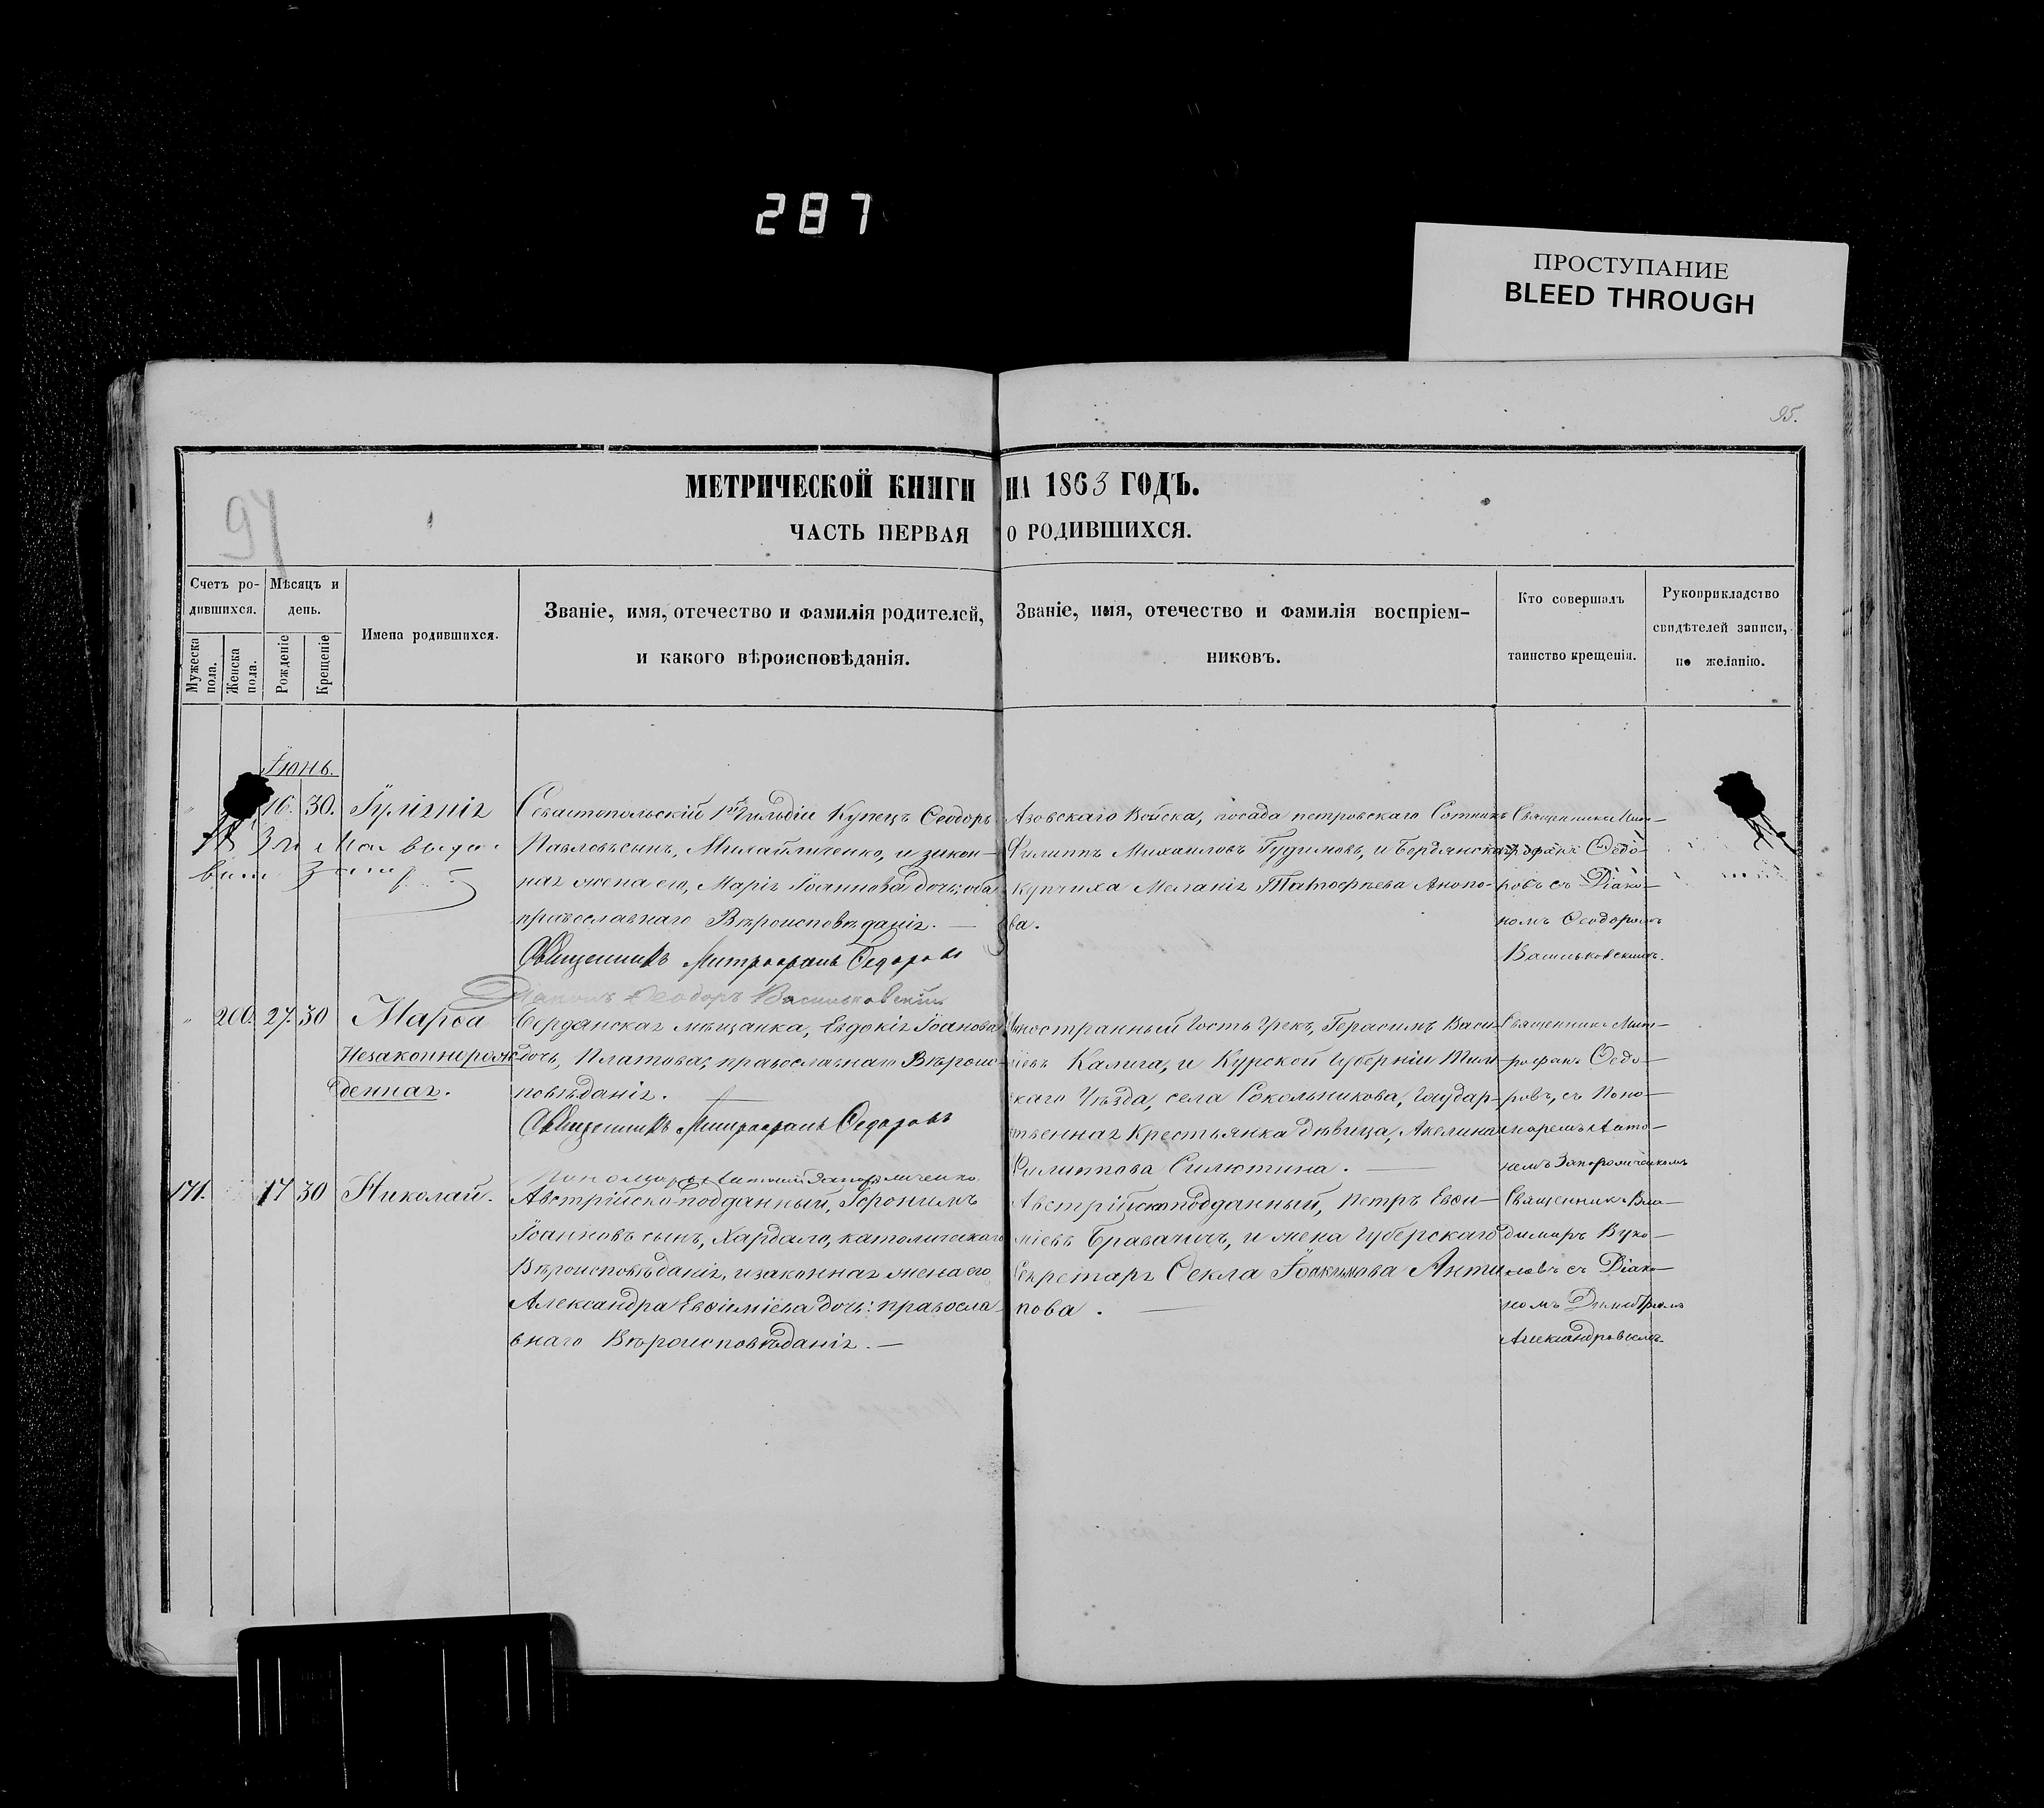 287
ПРОСТУПАНИЕ
BLEED THROUGH
95.
97
МЕТРИЧЕСКОЙ КНИГИ НА 1863 ГОДЪ.
ЧАСТЬ ПЕРВАЯ О РОДИВШИХСЯ.
Счетъ родившихся.
Мужеска пола.
Женска пола.
Мѣсяцъ и день.
Рожденіе
Крещеніе
Имена родившихся.
Званіе, имя, отечество и фамилія родителей,
и какого вѣроисповѣданія.
Званіе, имя, отечество и фамилія воспріем-
никовъ.
Кто совершалъ
таинство крещенія.
Рукоприкладство
свидѣтелей записи,
по желанію.
Іюнь.
16. 30. Іуліянія
Севастопольскій гильдіи Купецъ Ѳеодоръ
Павловъ сынъ, Михайличенко, и закон-
ная жена его, Марія Іоаннова дочь: оба
православнаго Вѣроисповѣданія. —
Священникъ Митрофанъ Ѳедоровъ
Діаконъ Ѳеодоръ Васильковскій
Азовскаго Войска, посада петровскаго Сотникъ
Филиппъ Михаиловъ Гудимовъ, и Бердянская
купчиха Меланія Анопо-
ва.
Священникъ Мит-
рофанъ Ѳедо-
ровъ съ Діако-
номъ Ѳеодоромъ
Васильковскимъ.
200. 27. 30 Марѳа
Незаконнорож-
денная.
Бердянская мѣщанка, Евдокія Іоанова
дочь, Платова; православнаго Вѣроис-
повѣданія. —
Священникъ Митрофанъ Ѳедоровъ
Пономарь Антоній
Иностранный Гость Грекъ, Герасимъ Васи-
ліевъ Калига, и Курской Губерніи Тим-
скаго Уѣзда, села Сокольникова, Государ-
ственная Крестьянка дѣвица, Акелина
Филиппова Силютина. —
Священникъ Мит-
рофанъ Ѳедо-
ровъ, съ Поно-
маремъ Анто-
171. 17 30 Николай.
Австрійско-подданный, Іеронимъ
Іоанновъ сынъ, Хардало, католическаго
Вѣроисповѣданія, и законная жена его
Александра Евѳиміева дочь: правосла-
внаго Вѣроисповѣданія. —
Австрійскоподданный, Петръ Евѳи-
міевъ Бравачичъ, и жена Губерскаго
Секретаря Ѳекла Іоакимова Анти-
пова. —
Священникъ Вла-
димиръ Вуко-
ловъ съ Діако-
номъ Димитріемъ